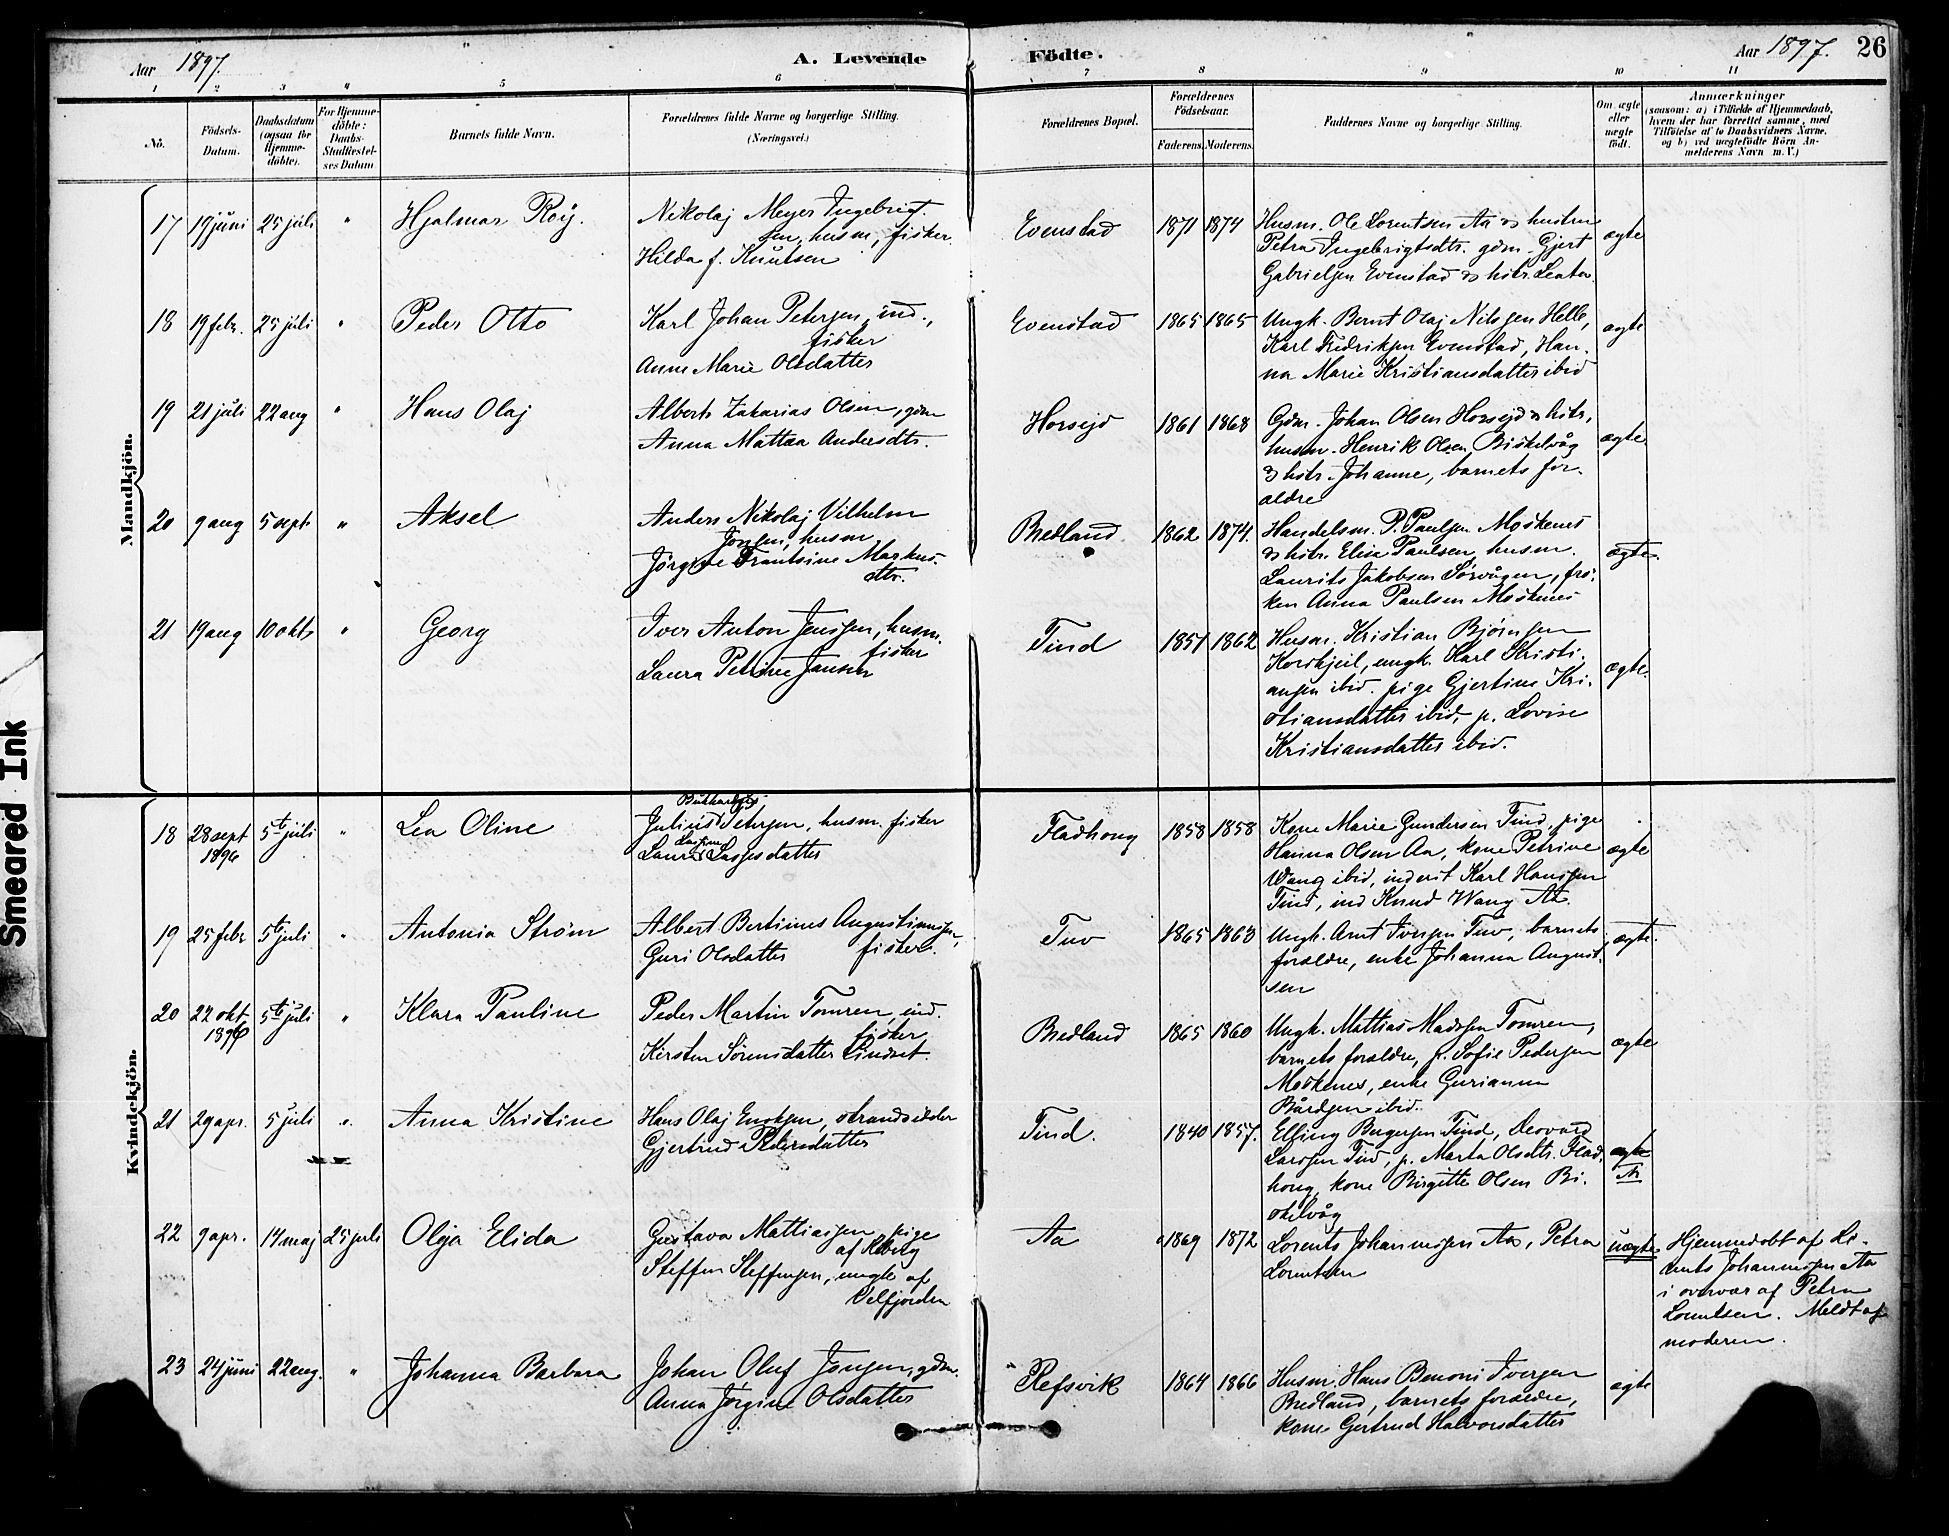 Aar 1897. A. Levende Födte. Aar 1897. 26
1 2 3 4 5 6 7 8 9 10 11
No. Födsels-Datum. Daabsdatum (ogsaa for Hjemme-döbte). For Hjemme-döbte: Daabs-Stadfæstel-ses Datum. Barnets fulde Navn. Forældrenes fulde Navne og borgerlige Stilling. (Næringsvei.) Forældrenes Bopæl. Forældrenes Födselsaar. Faderens. Moderens. Faddernes Navne og borgerlige Stilling. Om ægte eller uægte født. Anmærkninger
(saasom: a) i Tilfælde af Hjemmedaab,
hvem der har forrettet samme, med
Tilføielse af to Daabsvidners Navne.
og b) ved uægtefödte Börn An-
melderens Navn m. V.)
Mandkjön.
17 19 juni 25 juli " Hjalmar Roy. Nikolaj Meyer Ingebrigt-
sen, husm, fisker
Hilda f. Knutsen
Evenstad 1871 1874 Husm. Ole Lorentsen Aa & hustru
Petra Ingebrigtsdtr. gdm. Gjert
Gabrielsen Evenstad & hstr. Lenta
ægte
18 19 febr. 25 juli " Peder Otto Karl Johan Petersen, ind.,
fisker
Anne Marie Olsdatter
Evenstad 1865 1865 Ungk. Bernt Olaj Nilssen Helle,
Karl Fredriksen Evenstad, Han-
na Marie Kristiansdatter ibid
ægte
19 21 juli 22 aug " Hans Olaj Albert Zakarias Olsen, gdm
Anna Mattea Andersdtr.
Horseid 1861 1868 Gdm. Johan Olsen Horseid & hstr,
husm. Henrik Olsen Biskelvåg
& hstr. Johanne, barnets for-
ældre
ægte
20 9 aug 5 sept " Aksel Anders Nikolaj Vilhelm
husm
Jørgine Frantsine Markus-
dtr.
Bredland 1862 1874. Handelsm. P. Paulsen Moskenes
& hstr. Elise Paulsen, husm.
Laurits Jakobsen Sørvågen, frø-
ken Anna Paulsen Moskenes
ægte
21 19 aug 10 okt " Georg Iver Anton Jenssen, husm.
fisker
Laura Petrine Jansen
Tind 1851 1862 Husm. Kristian Bjørnsen
ungk. Karl Kristi-
ansen ibid. pige Gjertine Kri-
stiansdatter ibid, p. Lovise
Kristiansdatter ibid.
ægte.
Kvindekjön.
18 28 sept 1896 5te juli " Lea Oline
Julius Petersen, husm. fisker
Laura
Fladhoug 1858 1858 Kone Marie Gundersen Tind, pige
Hanna Olsen Aa, kone Petrine
Wang ibid, inderst Karl Hanssen
Tind, ind Knud Wang Aa.
ægte
19 25 febr 5te juli " Antonia Strøm Albert Bertinus Augustinussen,
fisker.
Guri Olsdatter
Tuv 1865 1863 Ungk. Arnt Iversen Tuv, barnets
forældre, enke Johanna August-
sen
ægte.
20 22 okt 1896 5te juli " Klara Pauline Peder Martin Tomren, ind.
fisker
Kersten Sørensdatter Lindset
Bredland 1865 1860 Ungk. Mattias Madssen Tomren,
barnets forældre, p. Sofie Pedersen
Moskenes, enke Gurianna
Bårdsen ibid.
ægte
21 29 apr. 5 juli " Anna Kristine Hans Olaj Enoksen, strandsidder
Gjertrud Pedersdatter
Tind. 1840 1857. Elling Bergersen Tind, Edvard
Larssen Tind, p. Marta Olsdtr. Flad-
houg, kone Birgitte Olsen Bi-
skelvåg
ægte
22 9 apr. 14 maj 25 juli Olga Elida Gustava Mattiassen, pige
af
Steffen Steffensen, ungk af
Velfjorden
Aa 1869 1872 Lorents Johannessen Aa, Petra
Lorentsen
uægte Hjemmedøbt af Lo-
rents Johannessen Aa
i overvær af Petra
Lorentsen. Meldt af
moderen.
23 24 juni 22 aug. " Johanna Barbara Johan Oluf Jensen, gdm.
Anna Jørgine Olsdatter
Refsvik 1864 1866 Husm. Hans Benoni Iversen
Bredland, barnets forældre,
kone Gjertrud Halvorsdatter
ægte
Smeared Ink